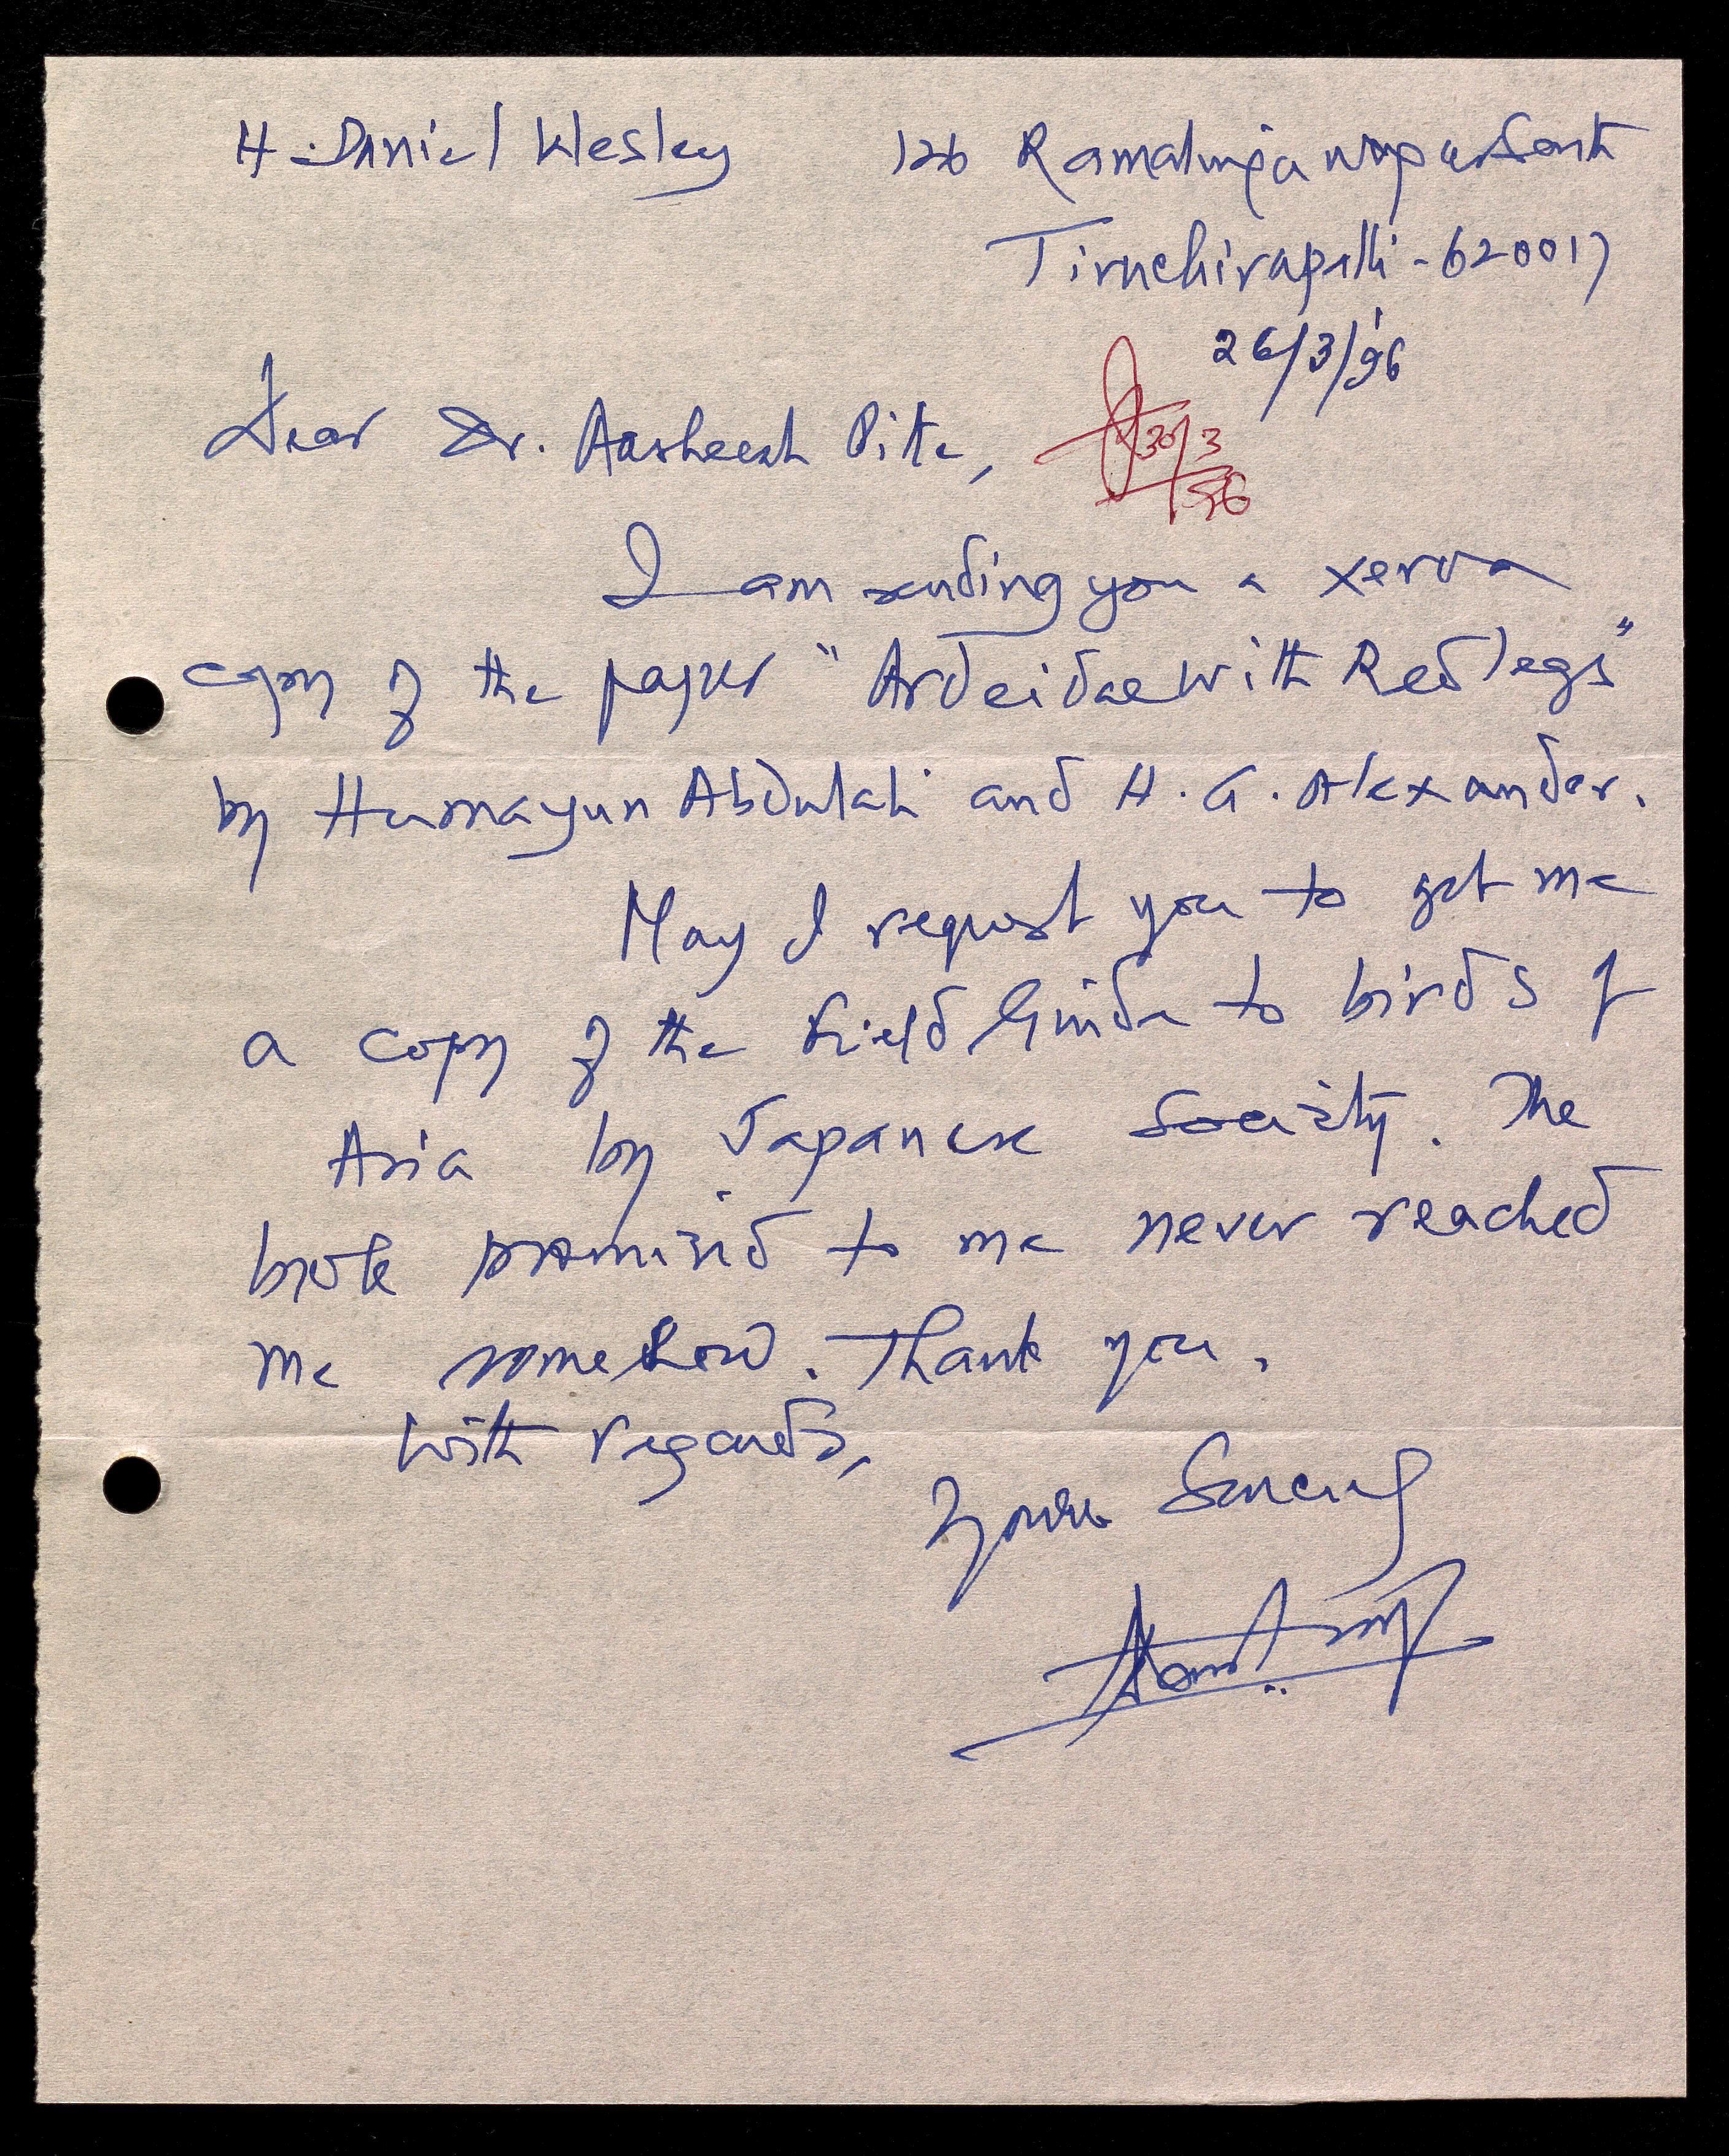 H. Daniel Wesley 126 Ramalinga nagar South
Tiruchirapalli - 620017
26/3/'96
Dear Dr. Aasheesh Pitta,
30/3/96
I am sending you a xerox
copy of the paper "Ardeidae with Red legs"
by Humayun Abdulali and H. G. Alexander.
May I request you to get me
a copy of the Field Guide to birds of
Asia by Japanese Society. The
book promised to me never reached
me somehow. Thank you.
With regards,
Yours Sincerely